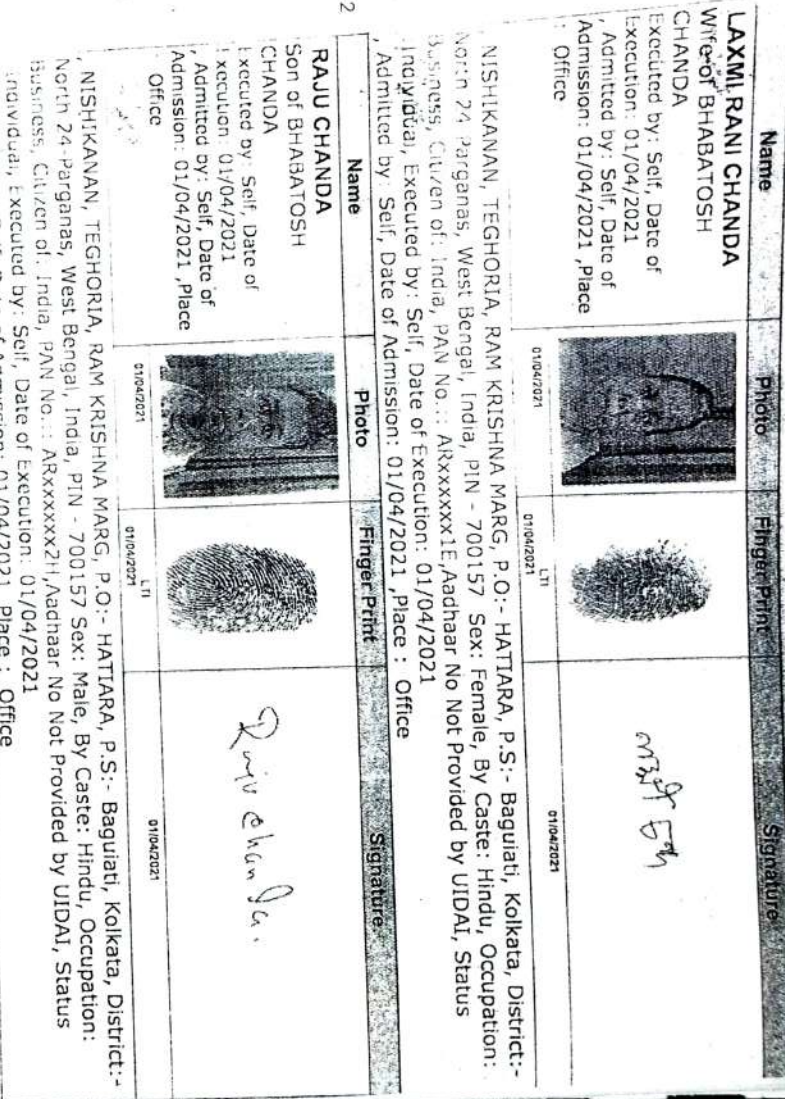 Name Photo Finger Print Signature
LAXMI RANI CHANDA
Wife of BHABATOSH
CHANDA
Executed by: Self, Date of
Execution: 01/04/2021
, Admitted by: Self, Date of
Admission: 01/04/2021 ,Place
: Office
01/04/2021 LTI 01/04/2021 01/04/2021
, NISHIKANAN, TEGHORIA, RAM KRISHNA MARG, P.O:- HATIARA, P.S:- Baguiati, Kolkata, District:-
North 24-Parganas, West Bengal, India, PIN - 700157 Sex: Female, By Caste: Hindu, Occupation:
Business, Citizen of: India, PAN No.:: ARxxxxxx1E,Aadhaar No Not Provided by UIDAI, Status
:Individual, Executed by: Self, Date of Execution: 01/04/2021
, Admitted by: Self, Date of Admission: 01/04/2021 ,Place : Office
2
Name Photo Finger Print Signature
RAJU CHANDA
Son of BHABATOSH
CHANDA
Executed by: Self, Date of
Execution: 01/04/2021
, Admitted by: Self, Date of
Admission: 01/04/2021 ,Place
Office
Raju Chanda.
01/04/2021 LTI 01/04/2021 01/04/2021
, NISHIKANAN, TEGHORIA, RAM KRISHNA MARG, P.O:- HATIARA, P.S:- Baguiati, Kolkata, District:-
North 24-Parganas, West Bengal, India, PIN - 700157 Sex: Male, By Caste: Hindu, Occupation:
Business, Citizen of: India, PAN No.:: ARxxxxxx2H,Aadhaar No Not Provided by UIDAI, Status
:Individual, Executed by: Self, Date of Execution: 01/04/2021
Admission: 01/04/2021 Place : Office